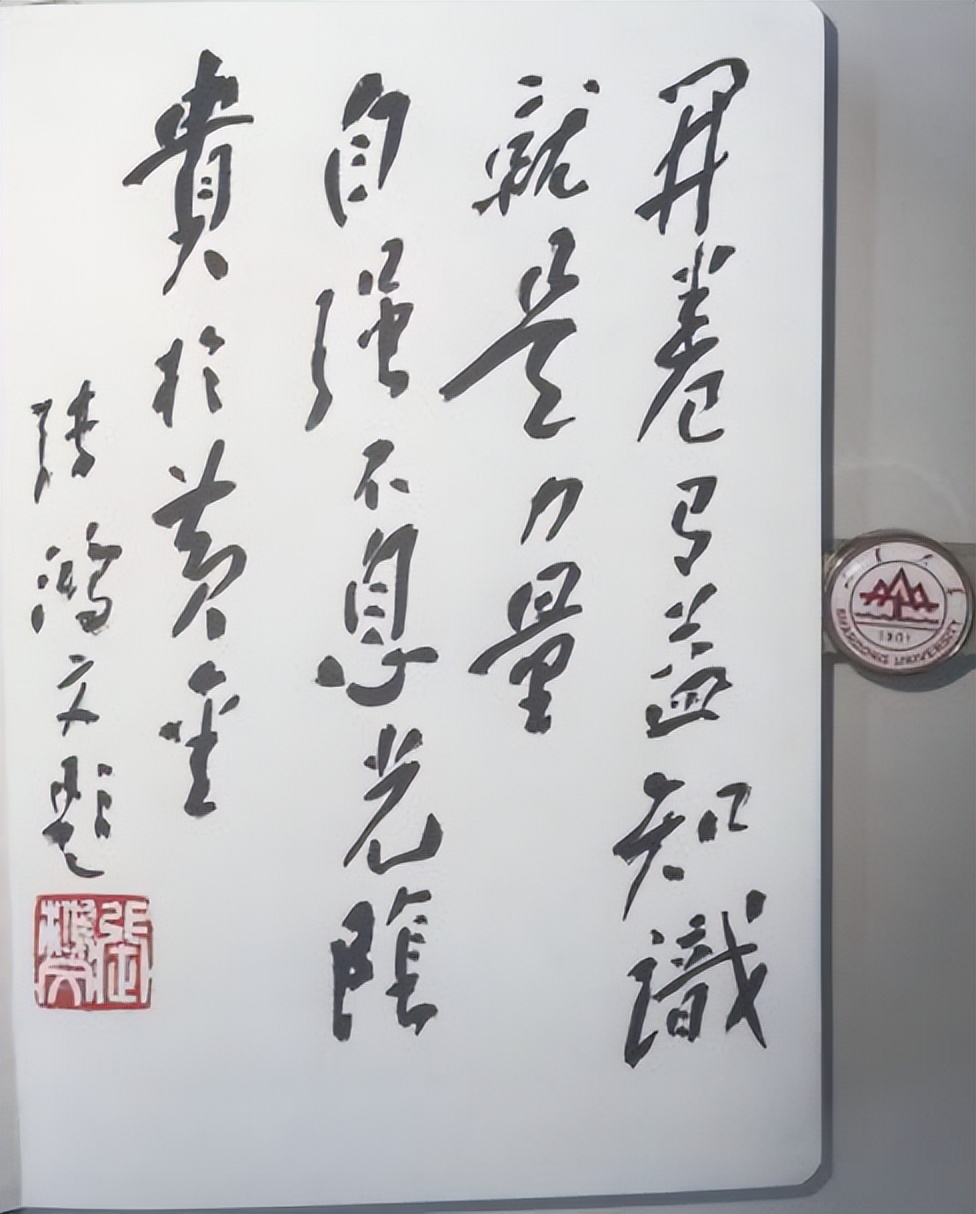 開卷有益知識
就是力量
自强不息光陰
貴於黃金
張鴻文題
SHANDONG UNIVERSITY
1901